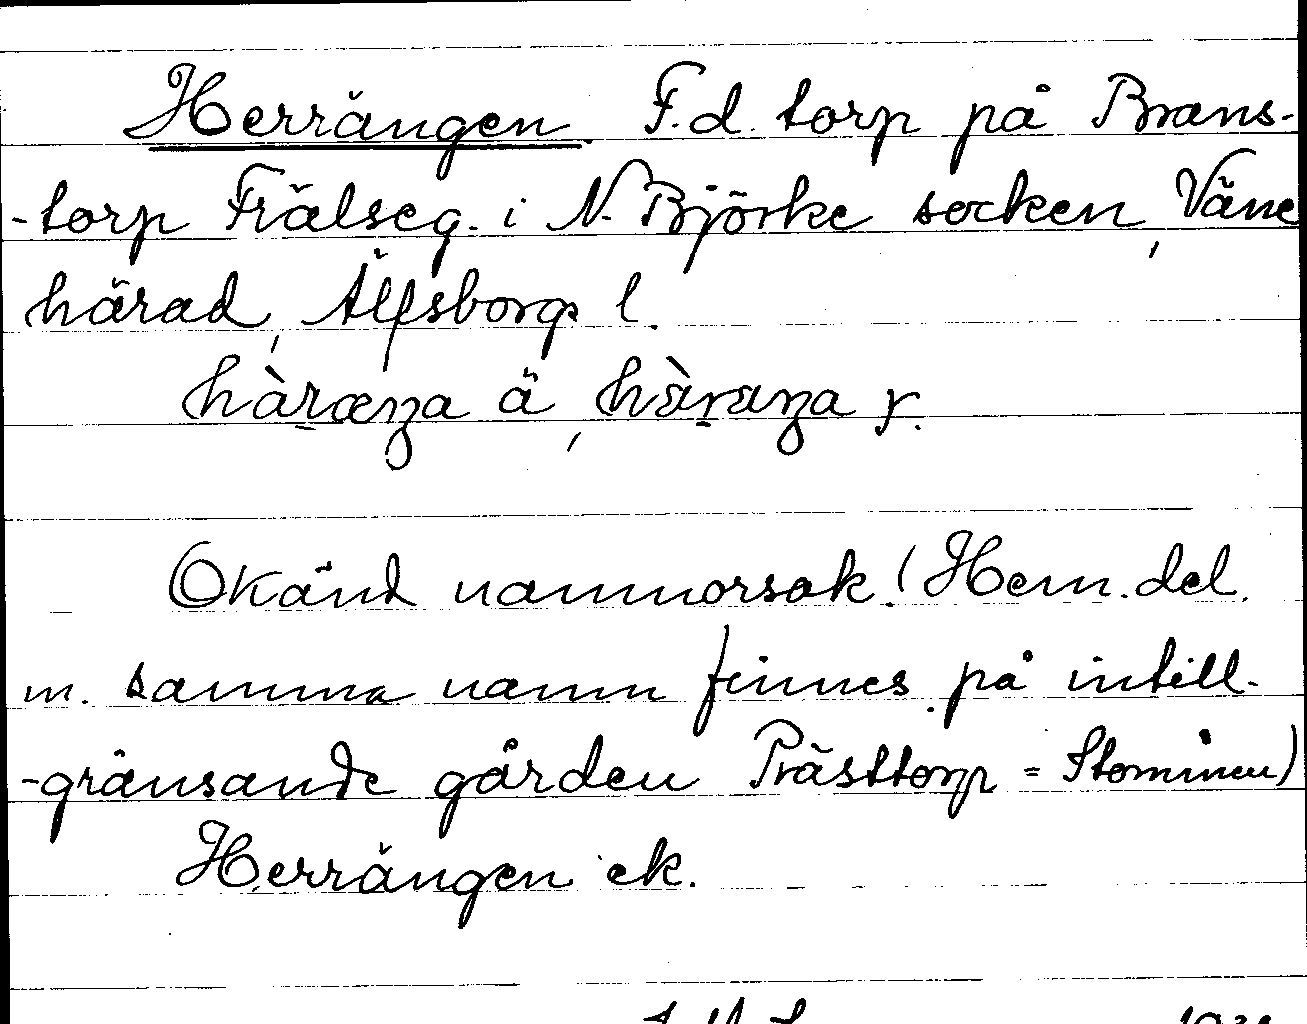 Herrängen. F.d. torp på Brans-
-torp Frälseg. i N. Björke socken, Väne
härad, Älfsborgs l.
hàræŋa ä, hàraŋa y.
Okänd namnorsak. (Hem. del.
m. samma namn finnes på intill-
-gränsande gården Prästtorp = Stommen)
Herrängen ek.